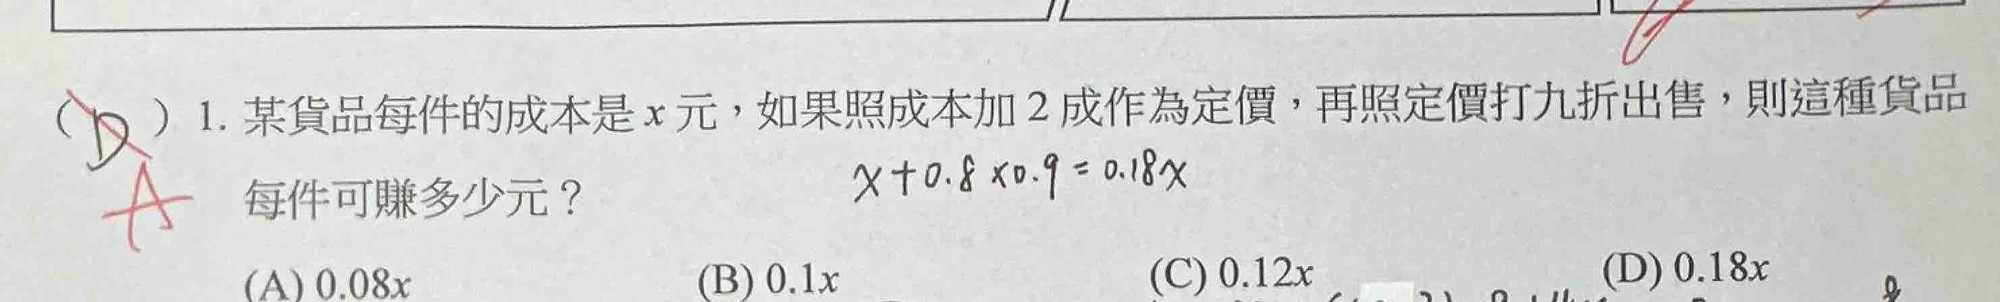 (D) 1. 某貨品每件的成本是 x 元，如果照成本加 2 成作為定價，再照定價打九折出售，則這種貨品
A
每件可賺多少元？
x+0.8×0.9=0.18x
(A) 0.08x (B) 0.1x (C) 0.12x (D) 0.18x